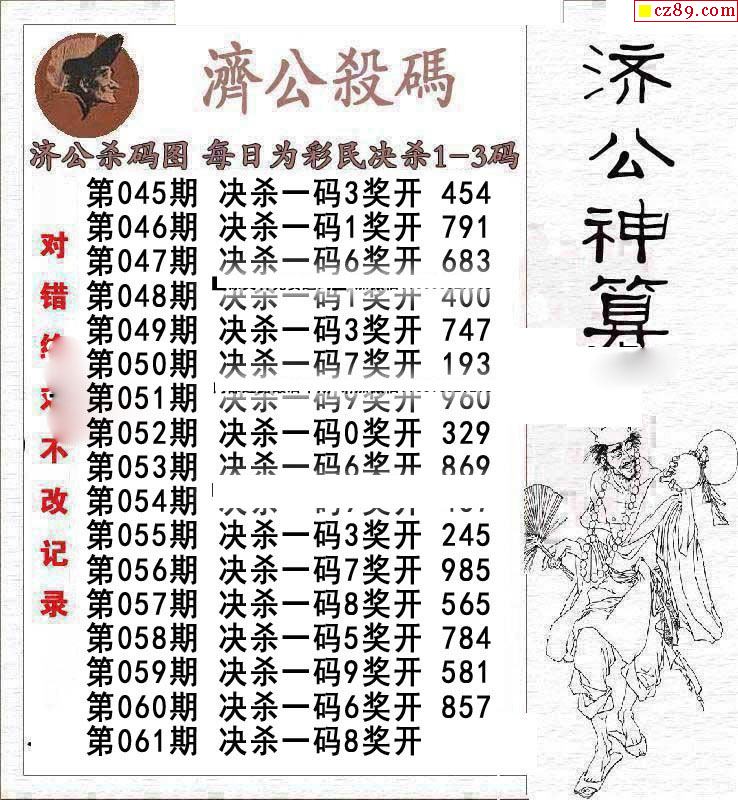 cz89.com
濟公殺碼
济公杀码图 每日为彩民决杀1-3码
第045期 决杀一码3奖开 454
第046期 决杀一码1奖开 791
第047期 决杀一码6奖开 683
第048期 决杀一码1奖开 400
第049期 决杀一码3奖开 747
第050期 决杀一码7奖开 193
第051期 决杀一码9奖开 960
第052期 决杀一码0奖开 329
第053期 决杀一码6奖开 869
第054期
第055期 决杀一码3奖开 245
第056期 决杀一码7奖开 985
第057期 决杀一码8奖开 565
第058期 决杀一码5奖开 784
第059期 决杀一码9奖开 581
第060期 决杀一码6奖开 857
第061期 决杀一码8奖开
对错不改记录
济公神算